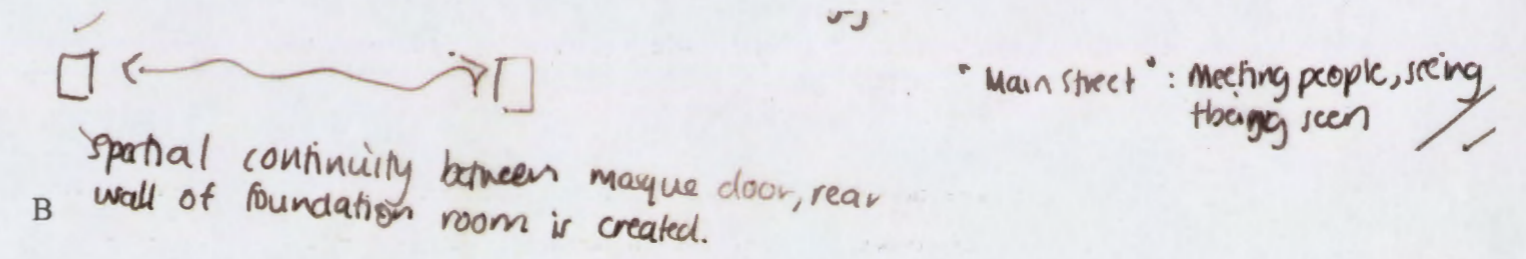 "Main street": Meeting people, seeing
+being seen
Spatial continuity between masque door, rear
wall of foundation room is created.
B